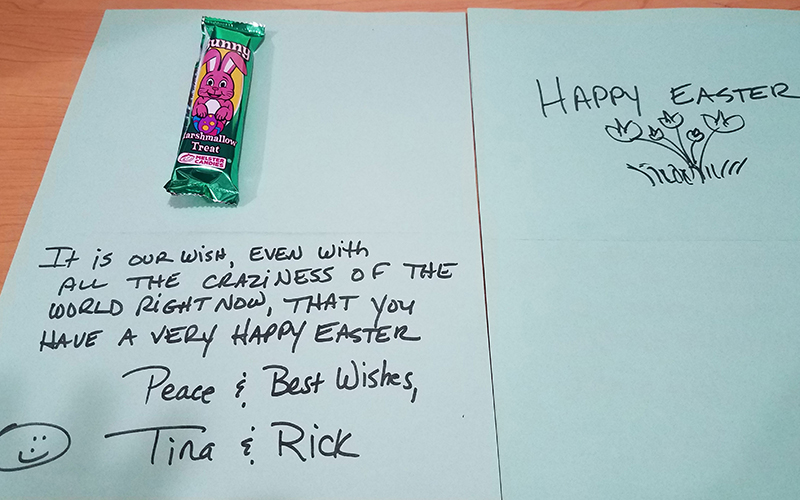 Bunny
Marshmallow
Treat
MELSTER
CANDIES
HAPPY EASTER
IT IS OUR WISH, EVEN WITH
ALL THE CRAZINESS OF THE
WORLD RIGHT NOW, THAT YOU
HAVE A VERY HAPPY EASTER
Peace & Best Wishes,
Tina & Rick